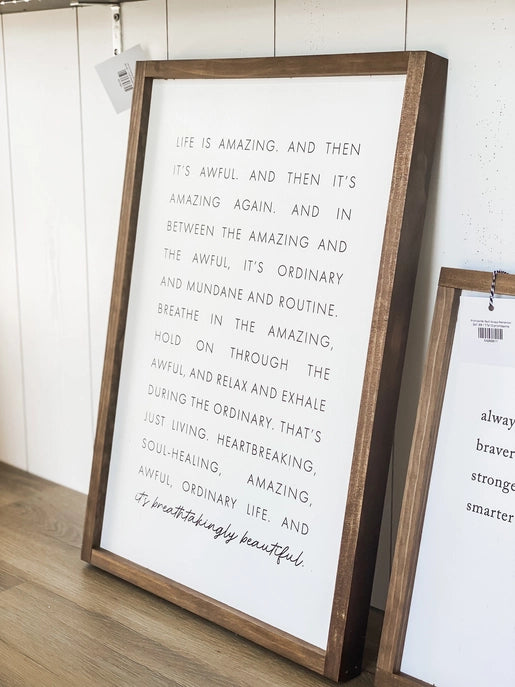 LIFE IS AMAZING. AND THEN
IT'S AWFUL. AND THEN IT'S
AMAZING AGAIN. AND IN
BETWEEN THE AMAZING AND
THE AWFUL, IT'S ORDINARY
AND MUNDANE AND ROUTINE.
BREATHE IN THE AMAZING,
HOLD ON THROUGH THE
AWFUL, AND RELAX AND EXHALE
DURING THE ORDINARY. THAT'S
JUST LIVING. HEARTBREAKING,
SOUL-HEALING, AMAZING,
AWFUL, ORDINARY LIFE. AND
it's breathtakingly beautiful.
alway
braver
stronge
smarter